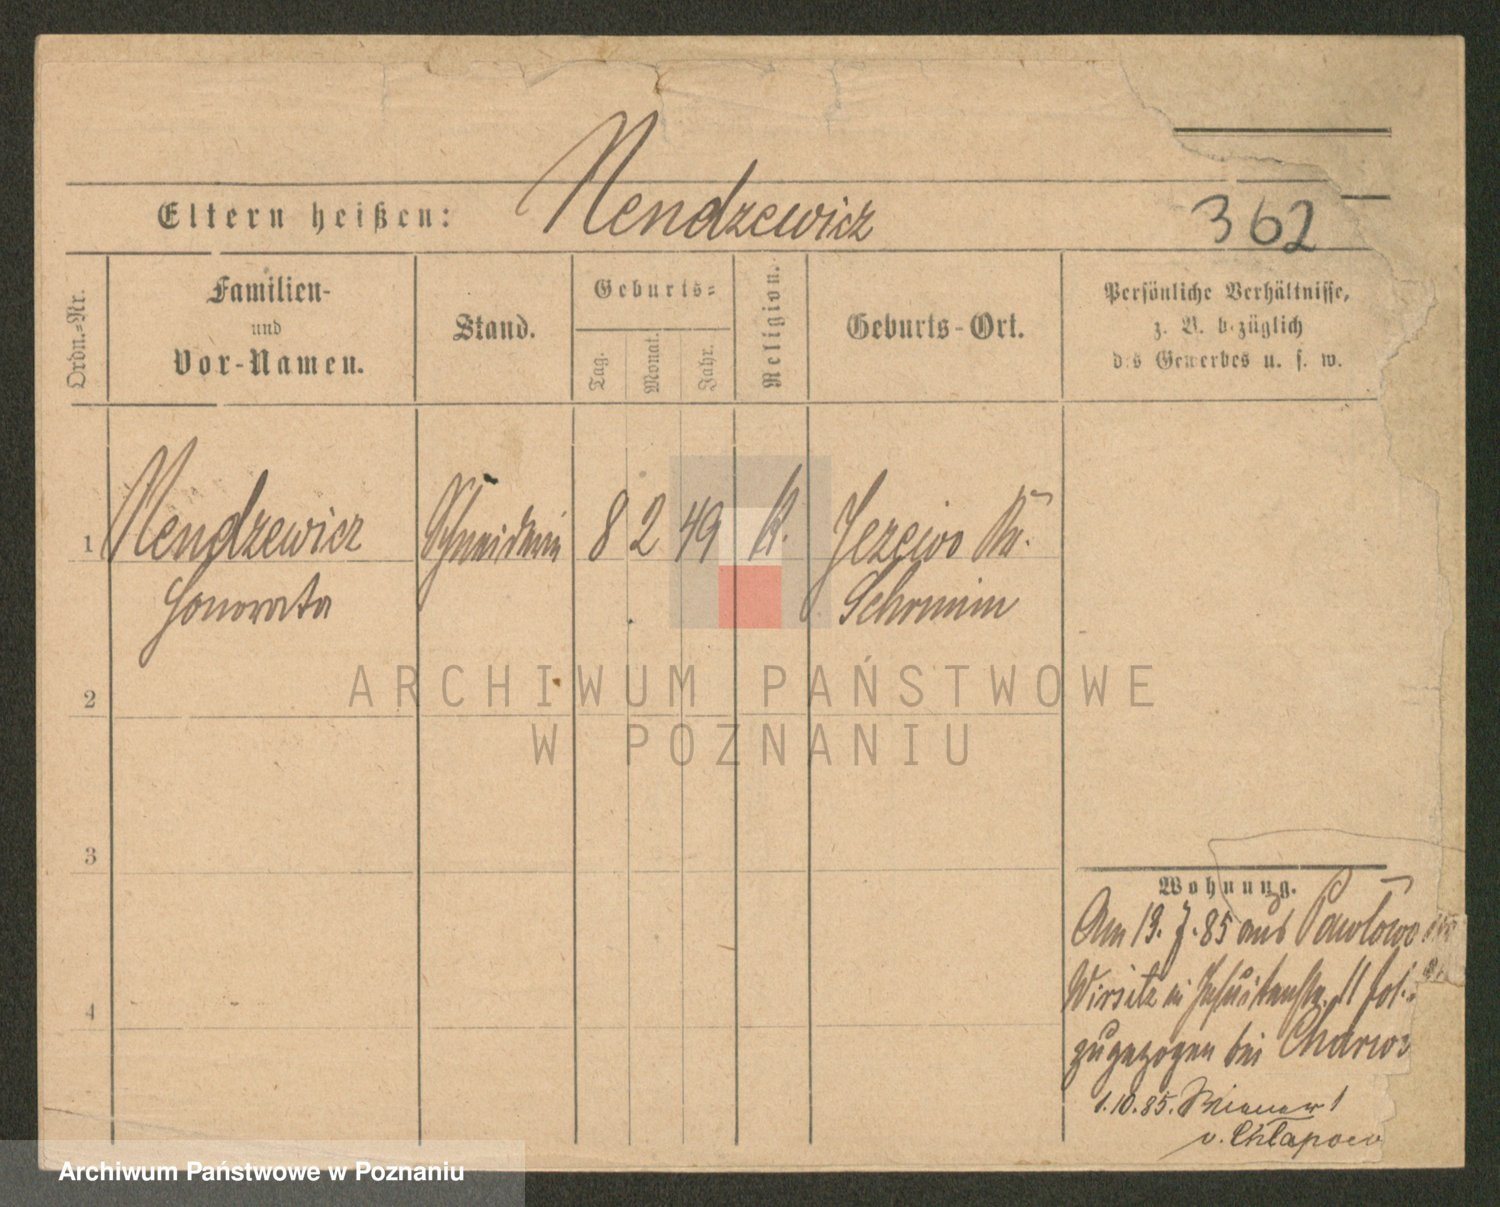 Eltern heißen: Nendzewicz 362
Ordn.-Nr.
Familien-
und
Vor-Namen.
Stand.
Geburts-
Tag.
Monat.
Jahr.
Religion.
Geburts-Ort.
Persönliche Verhältnisse,
z. B. bezüglich
des Gewerbes u. s. w.
1 Nendzewicz Schneiderin 8 2 49 K. Jezewo Kr.
Honorata Schrimm
2
3
4
ARCHIWUM PAŃSTWOWE
W POZNANIU
Wohnung.
Am 13. 7. 85 aus Pawlowo
Wirsitz in Jesuitenstr. 11
zugezogen bei
1.10.85.
v. Chlapow
Archiwum Państwowe w Poznaniu